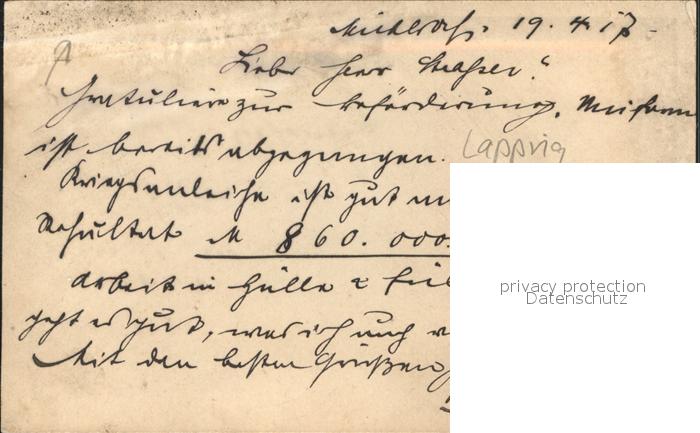 19.4.17.
Lieber Herr
Gratuliere zur Beförderung. Uniform
ist bereits abgegangen. Lapprig
Kriegsanleihe ist gut
Resultat M 860.000.
Arbeit in Hülle &
geht es gut, was ich auch v
Mit den besten Grüßen
privacy protection
Datenschutz